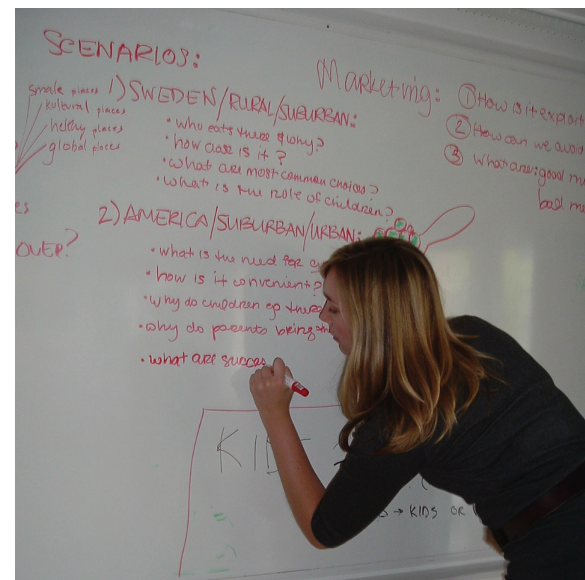 SCENARIOS:
smale places
kultural places
helthy places
global places
OVER?
1) SWEDEN/RURAL/SUBURBAN:
• who eats there & why?
• how close is it?
• what are most common choices?
• what is the role of children?
2) AMERICA/SUBURBAN/URBAN:
• what is the need for
• how is it convenient?
• why do children go there
• why do parents bring
• what are succes
Marketing:
① How is it exploit
② How can we avoid
③ What are: good
bad
KIDS
→ KIDS OR